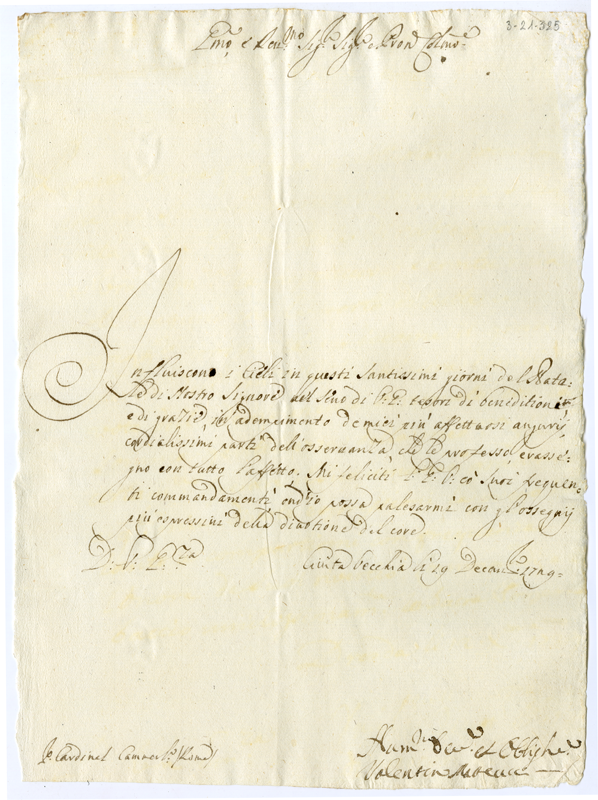 3-21-325
Emo e Reu:mo Sig:r Sig:r e Pron Colmo
Influiscono i Cieli in questi Santissimi giorni del Nata-
le di Nostro Signore nel Seno di V: E: tesori di beneditioni
e di gratie, in adempimento de miei più affettuosi augurij
cordialissimi parti dell'osseruanza, che le professo, e rasse-
gno con tutto l'affetto. Mi feliciti V: E: co' Suoi frequen-
ti commandamenti ond'io possa palesarmi con gl'ossequij
più espressiui della diuotione del core.
D: V: E:za Ciuita Vecchia li 29 Decem:
Hum:o Deu:o et Obligh:o
Valentin
Cardinal (Roma)